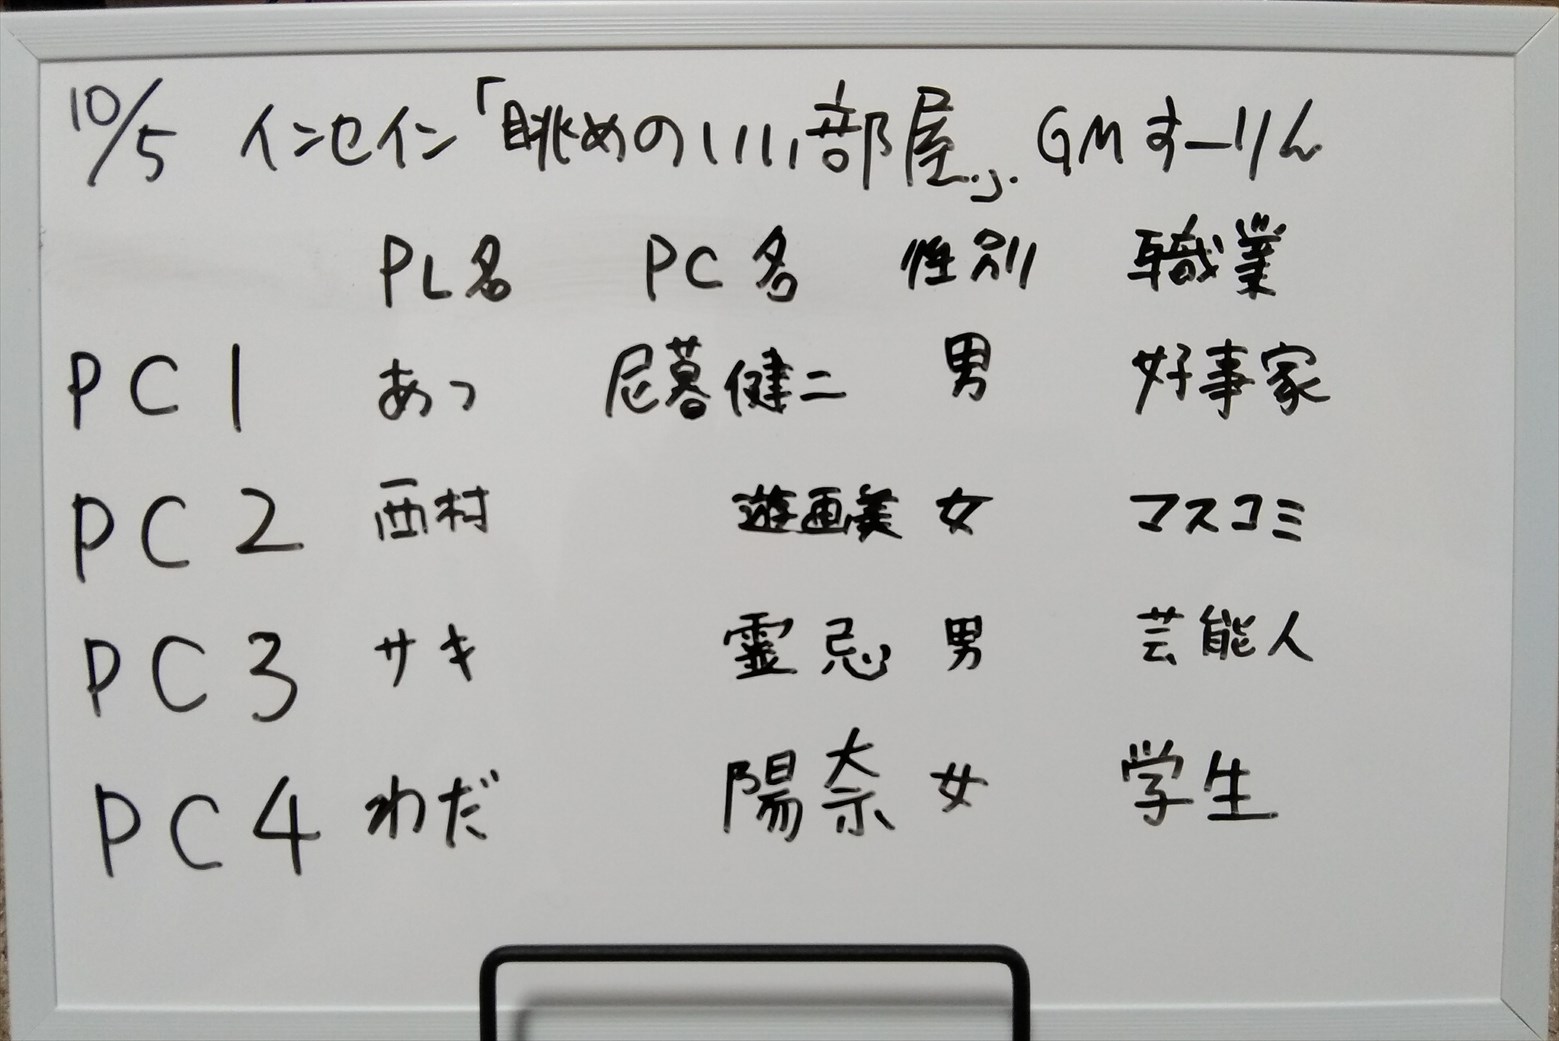 10/5 インセイン「眺めのいい部屋」. GMすーりん
PL名 PC名 性別 職業
PC1 あっ 尼暮健二 男 好事家
PC2 西村 遊画美 女 マスコミ
PC3 サキ 霊忌 男 芸能人
PC4 わだ 陽奈 女 学生